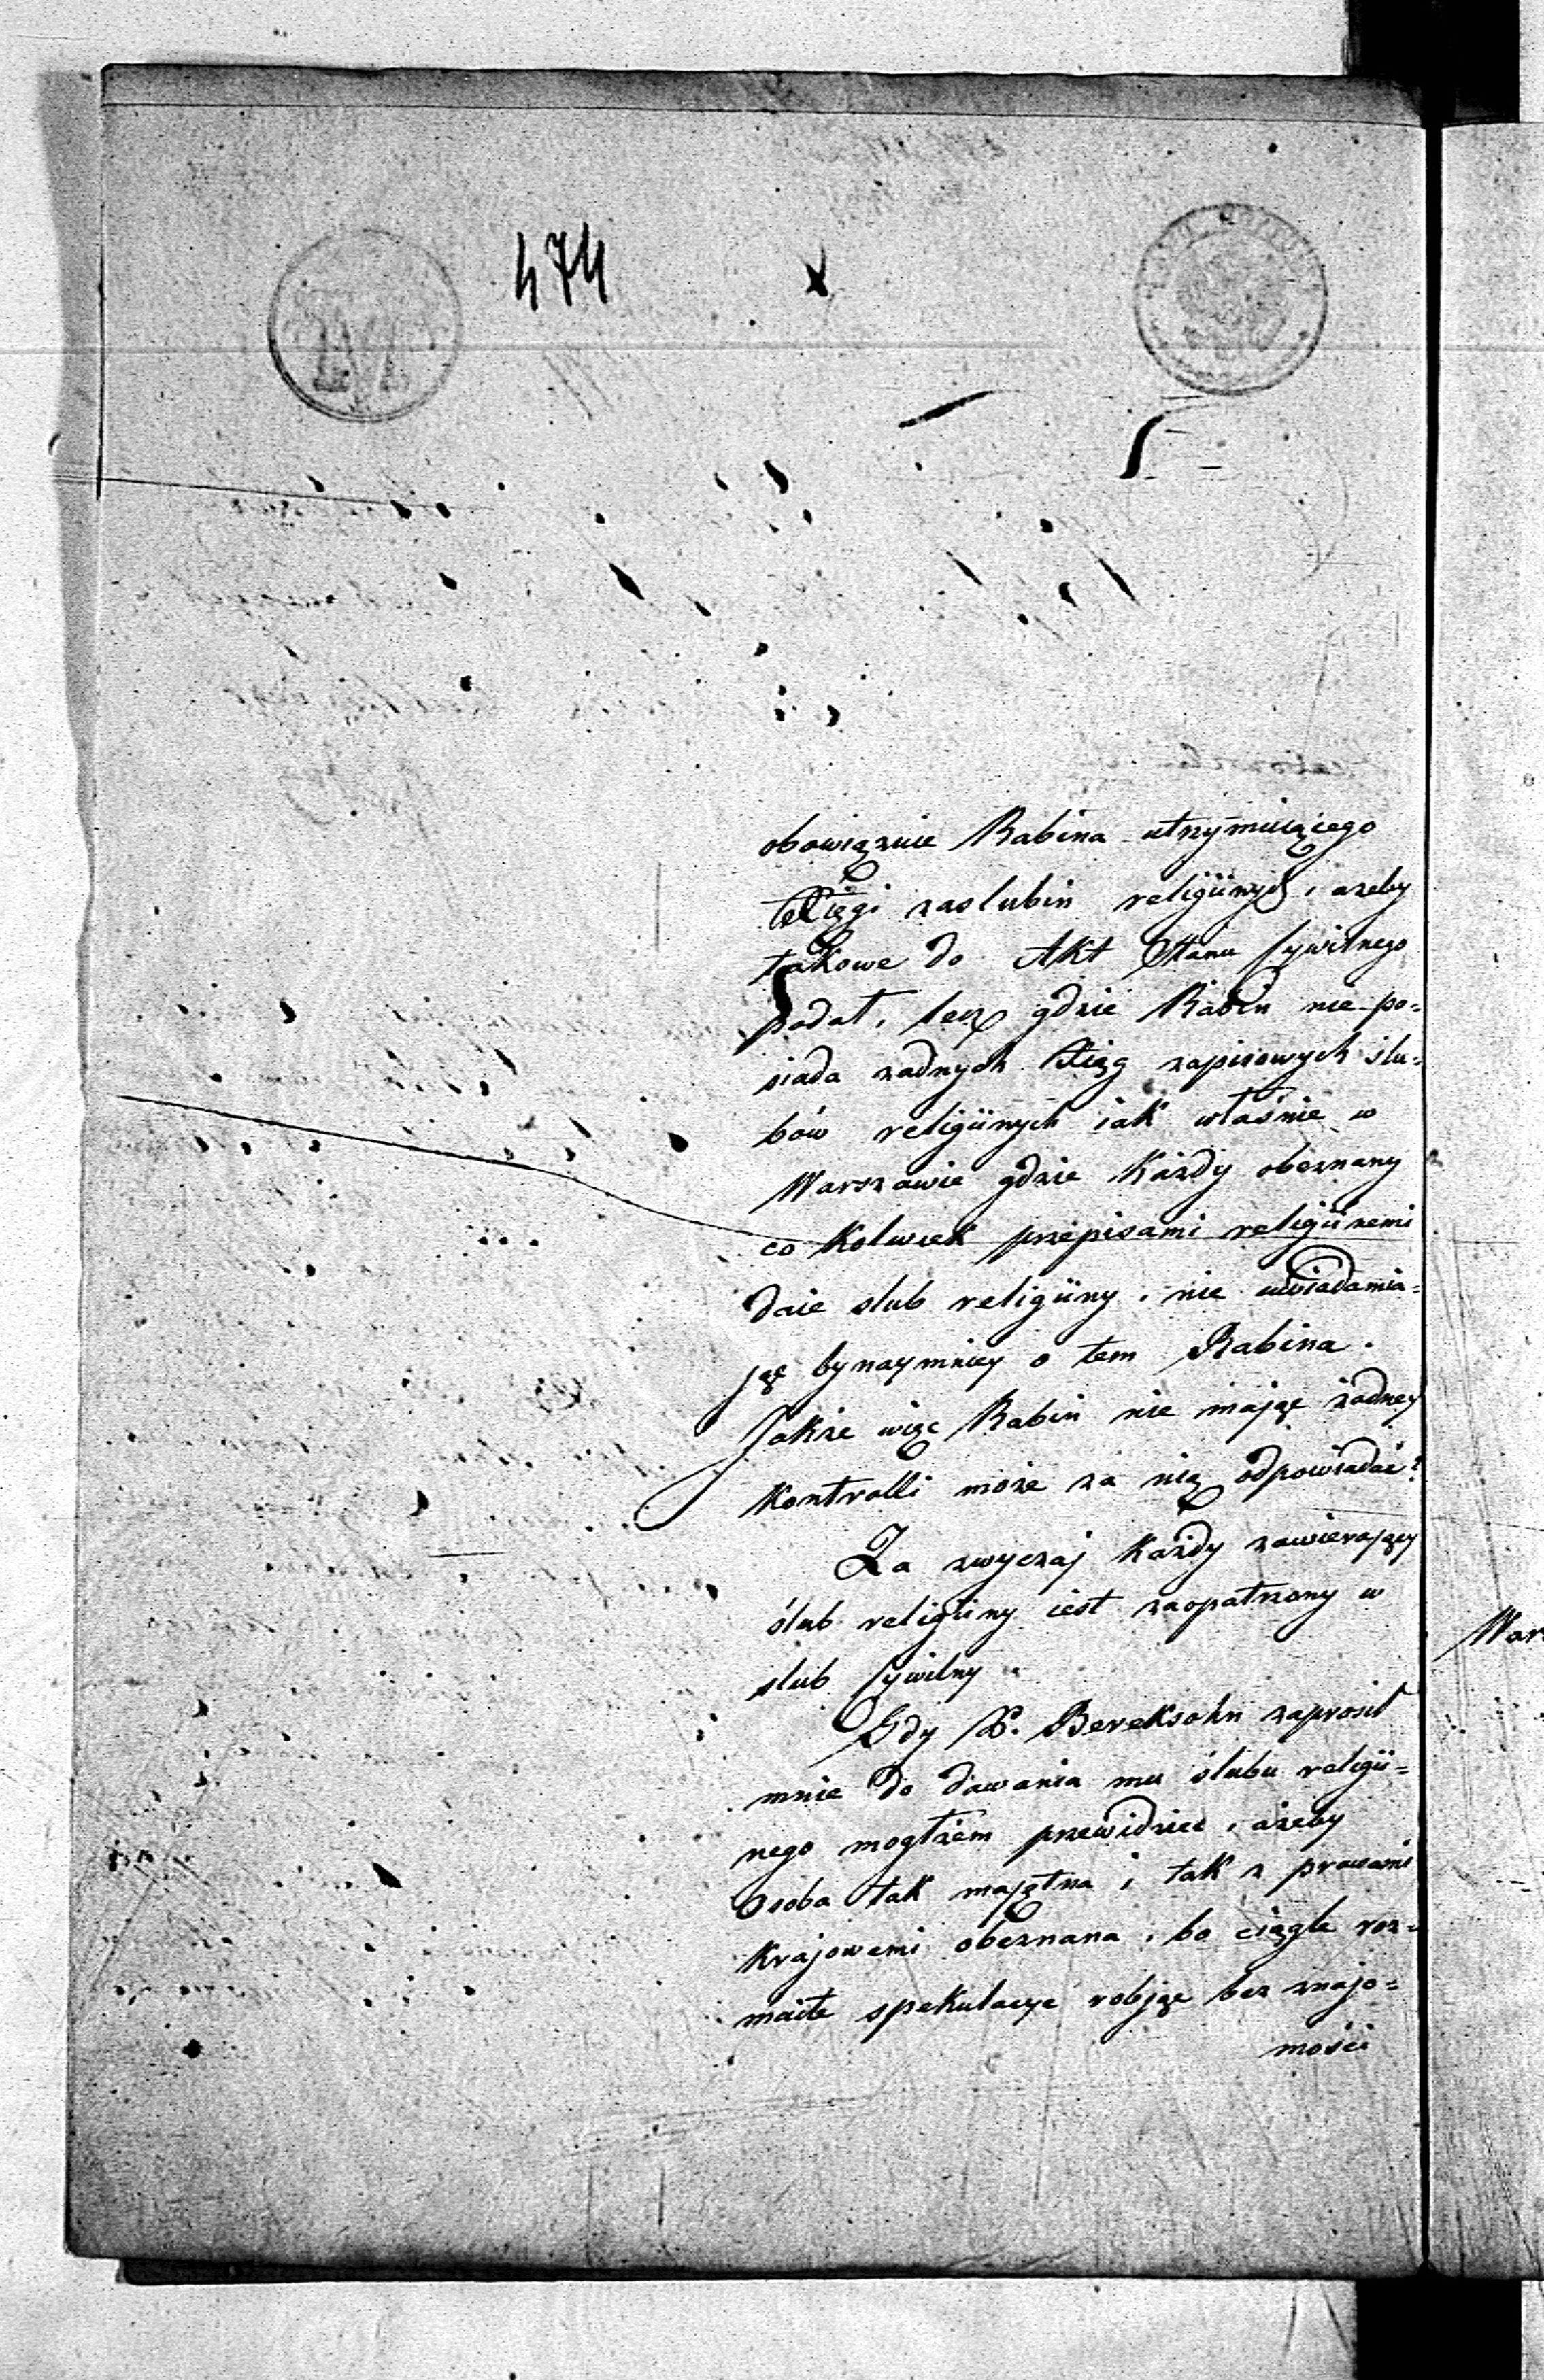 474
obowiązuie Rabina utrzymuiącego
Xięgi zaslubin religiinych, azeby
takowe do Akt Stanu Cywilnego
podał, lecz gdzie Rabin nie po=
siada zadnych Xiąg zapisowych slu=
bów religiinych iak właśnie w
Warszawie gdzie Każdy obeznany
co kolwiek przepisami religiinemi
daie slub religiiny, nie uwiadamia=
jąc bynaymniey o tem Rabina.
Jakże więc Rabin nie mając żadney
Kontrolli może za nią odpowiadać?
Za zwyczaj Każdy zawierający
ślub religiiny iest zaopatrzony w
slub Cywilny.
Gdy P. Bereksohn zaprosił
mnie do dawania mu ślubu religii=
nego mogłżem przewidzieć, ażeby
Osoba tak majętna i tak z prawami
Krajowemi obeznana, bo ciągle roz=
maite spekulacye robjąc bez znajo=
mości